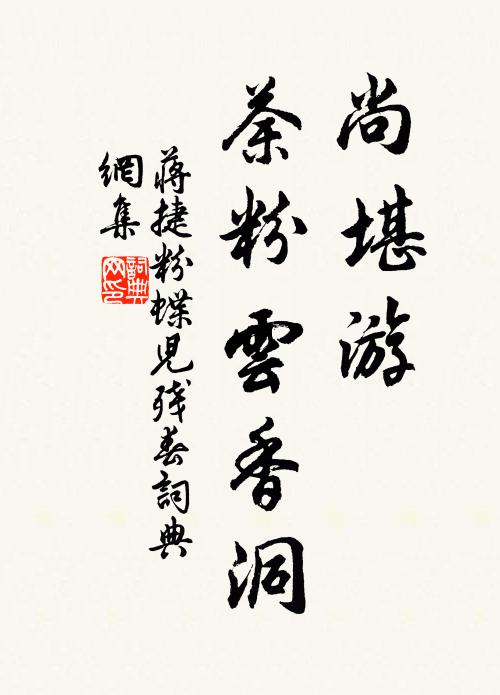 尚堪游
荼粉雲香洞
蔣捷粉蝶兒殘春詞典
網集
詞典
网印